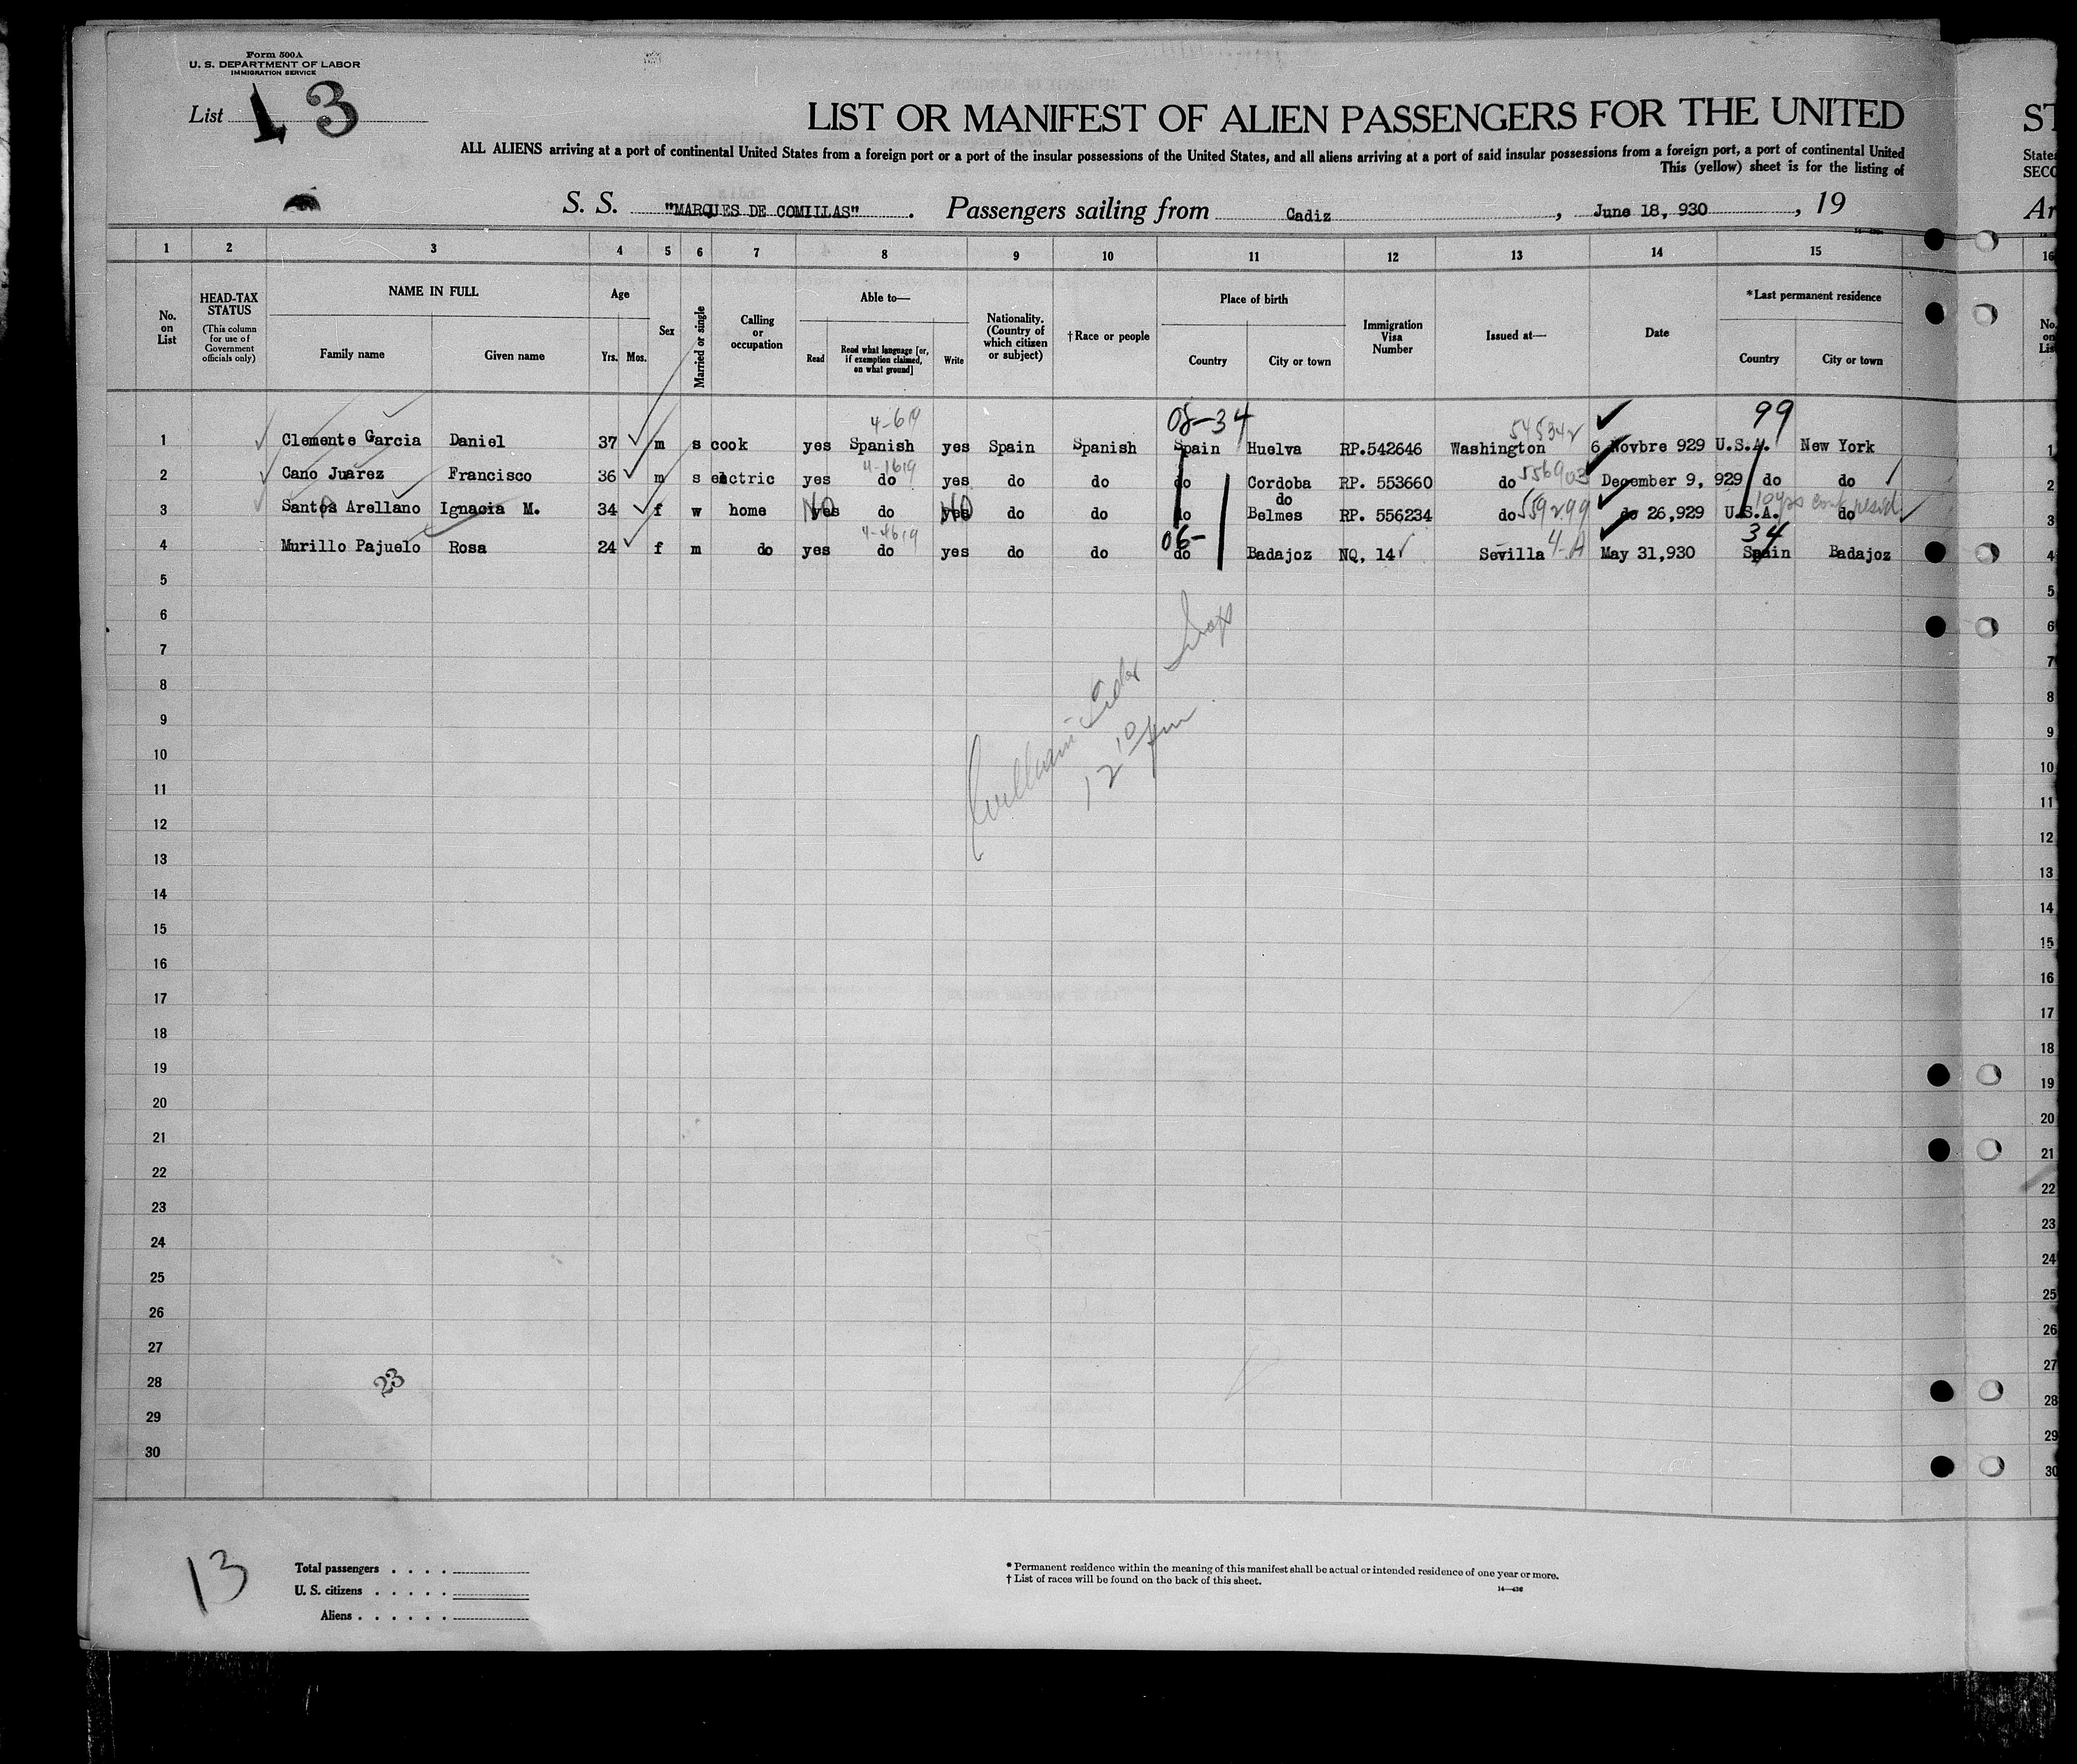 Form 500A
U. S. DEPARTMENT OF LABOR
IMMIGRATION SERVICE
List 13
LIST OR MANIFEST OF ALIEN PASSENGERS FOR THE UNITED ST
ALL ALIENS arriving at a port of continental United States from a foreign port or a port of the insular possessions of the United States, and all aliens arriving at a port of said insular possessions from a foreign port, a port of continental United State
This (yellow) sheet is for the listing of SECO
S. S. "MARQUES DE COMILLAS". Passengers sailing from Cadiz, June 18, 930, 19 Ar
1 2 3 4 5 6 7 8 9 10 11 12 13 14 15 16
No. on List
HEAD-TAX STATUS (This column for use of Government officials only)
NAME IN FULL
Family name Given name
Age
Yrs. Mos.
Sex
Married or single
Calling or occupation
Able to—
Read
Read what language [or, if exemption claimed, on what ground]
Write
Nationality. (Country of which citizen or subject)
†Race or people
Place of birth
Country City or town
Immigration Visa Number
Issued at—
Date
*Last permanent residence
Country City or town
No. on List
4-619 08-34 545342 99
1 Clemente Garcia Daniel 37 m s cook yes Spanish yes Spain Spanish Spain Huelva RP.542646 Washington 6 Novbre 929 U.S.A. New York 1
4-1619 556903
2 Cano Juarez Francisco 36 m s electric yes do yes do do do Cordoba RP. 553660 do December 9, 929 do do 2
do
559299
3 Santos Arellano Ignacia M. 34 f w home yes NO do yes NO do do do Belmes RP. 556234 do do 26,929 U.S.A. do 3
10 yrs cont resid
4-4619 06- 4-A 34
4 Murillo Pajuelo Rosa 24 f m do yes do yes do do do Badajoz NQ, 14 Sevilla May 31,930 Spain Badajoz 4
5 5
6 6
7 7
8 8
9 9
10 10
11 11
12 12
13 13
14 14
15 15
16 16
17 17
18 18
19 19
20 20
21 21
22 22
23 23
24 24
25 25
26 26
27 27
28 28
29 29
30 30
12 10 pm
23
13
Total passengers
U. S. citizens
Aliens
* Permanent residence within the meaning of this manifest shall be actual or intended residence of one year or more.
† List of races will be found on the back of this sheet.
14—436